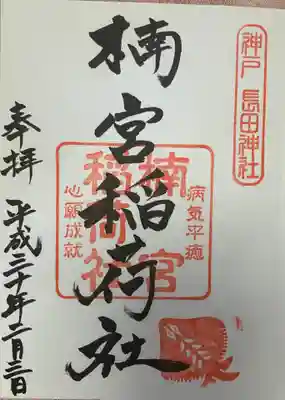 神戸 長田神社
楠宮稲荷社
楠宮
稲荷社
病気平癒
心願成就
奉拝 平成二十年二月三日